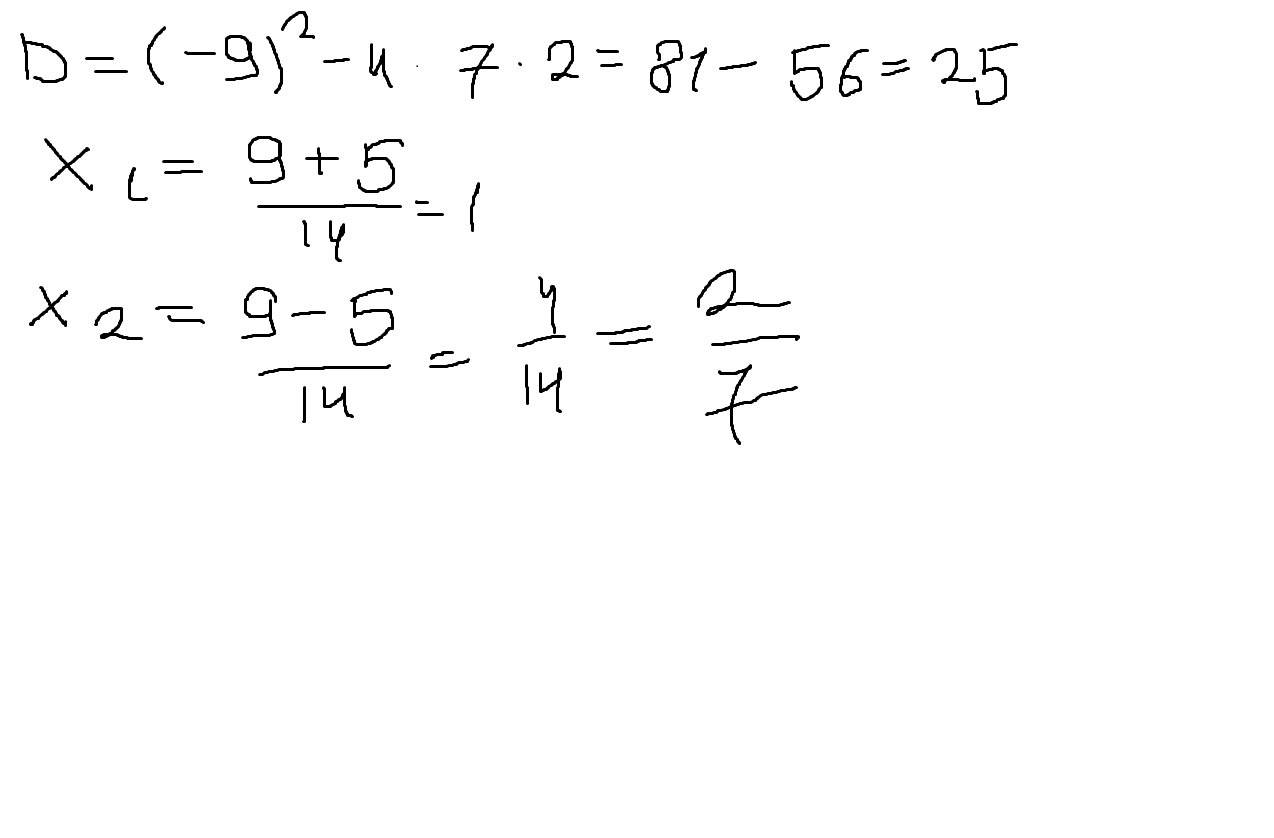 D = (-9)² - 4 · 7 · 2 = 81 - 56 = 25
x₁ = (9 + 5)/14 = 1
x₂ = (9 - 5)/14 = 4/14 = 2/7